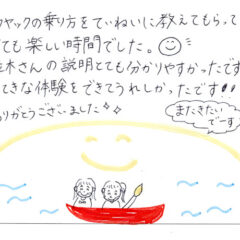 ヤックの乗り方をていねいに教えてもらって
ても楽しい時間でした。
木さんの説明とても分かりやすかったです
てきな体験をできてうれしかったです!!
りがとうございました
またきたい
でーす